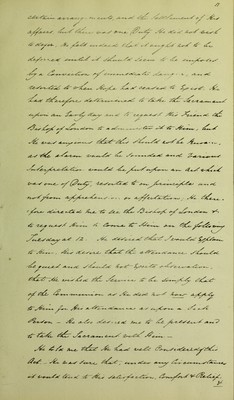 certain arrangements, and the settlement of His
affairs but there was one Duty He did not wish
to defer. He felt indeed that it ought not to be
deferred until it should seem to be imposed
by a Conviction of immediate danger, and
resorted to when Hope had ceased to Exist. He
has therefore determined to take the Sacrament
upon an Early day and to request His Friend the
Bishop of London to administer it to Him, but
He was anxious that this should not be known,
as the alarm would be sounded and various
Interpretation would be put upon an Act which
was one of Duty, resorted to on principle and
not from apprehension, or affectation. He there-
fore directed me to see the Bishop of London &
to request Him to come to Him on the following
Tuesday at 12. He desired that I would Explain
to Him, His desire that the attendance should
be quiet and should not Excite observation,
that He wished the Service to be simply that
of the Communion as He did not now apply
to Him for His attendance as upon a Sick
Person. He also desired me to be present and
to take the Sacrament with Him.
He told me that He had well Considered this
Act. He was sure that, under any Circumstances
it would tend to His satisfaction, Comfort & Relief,